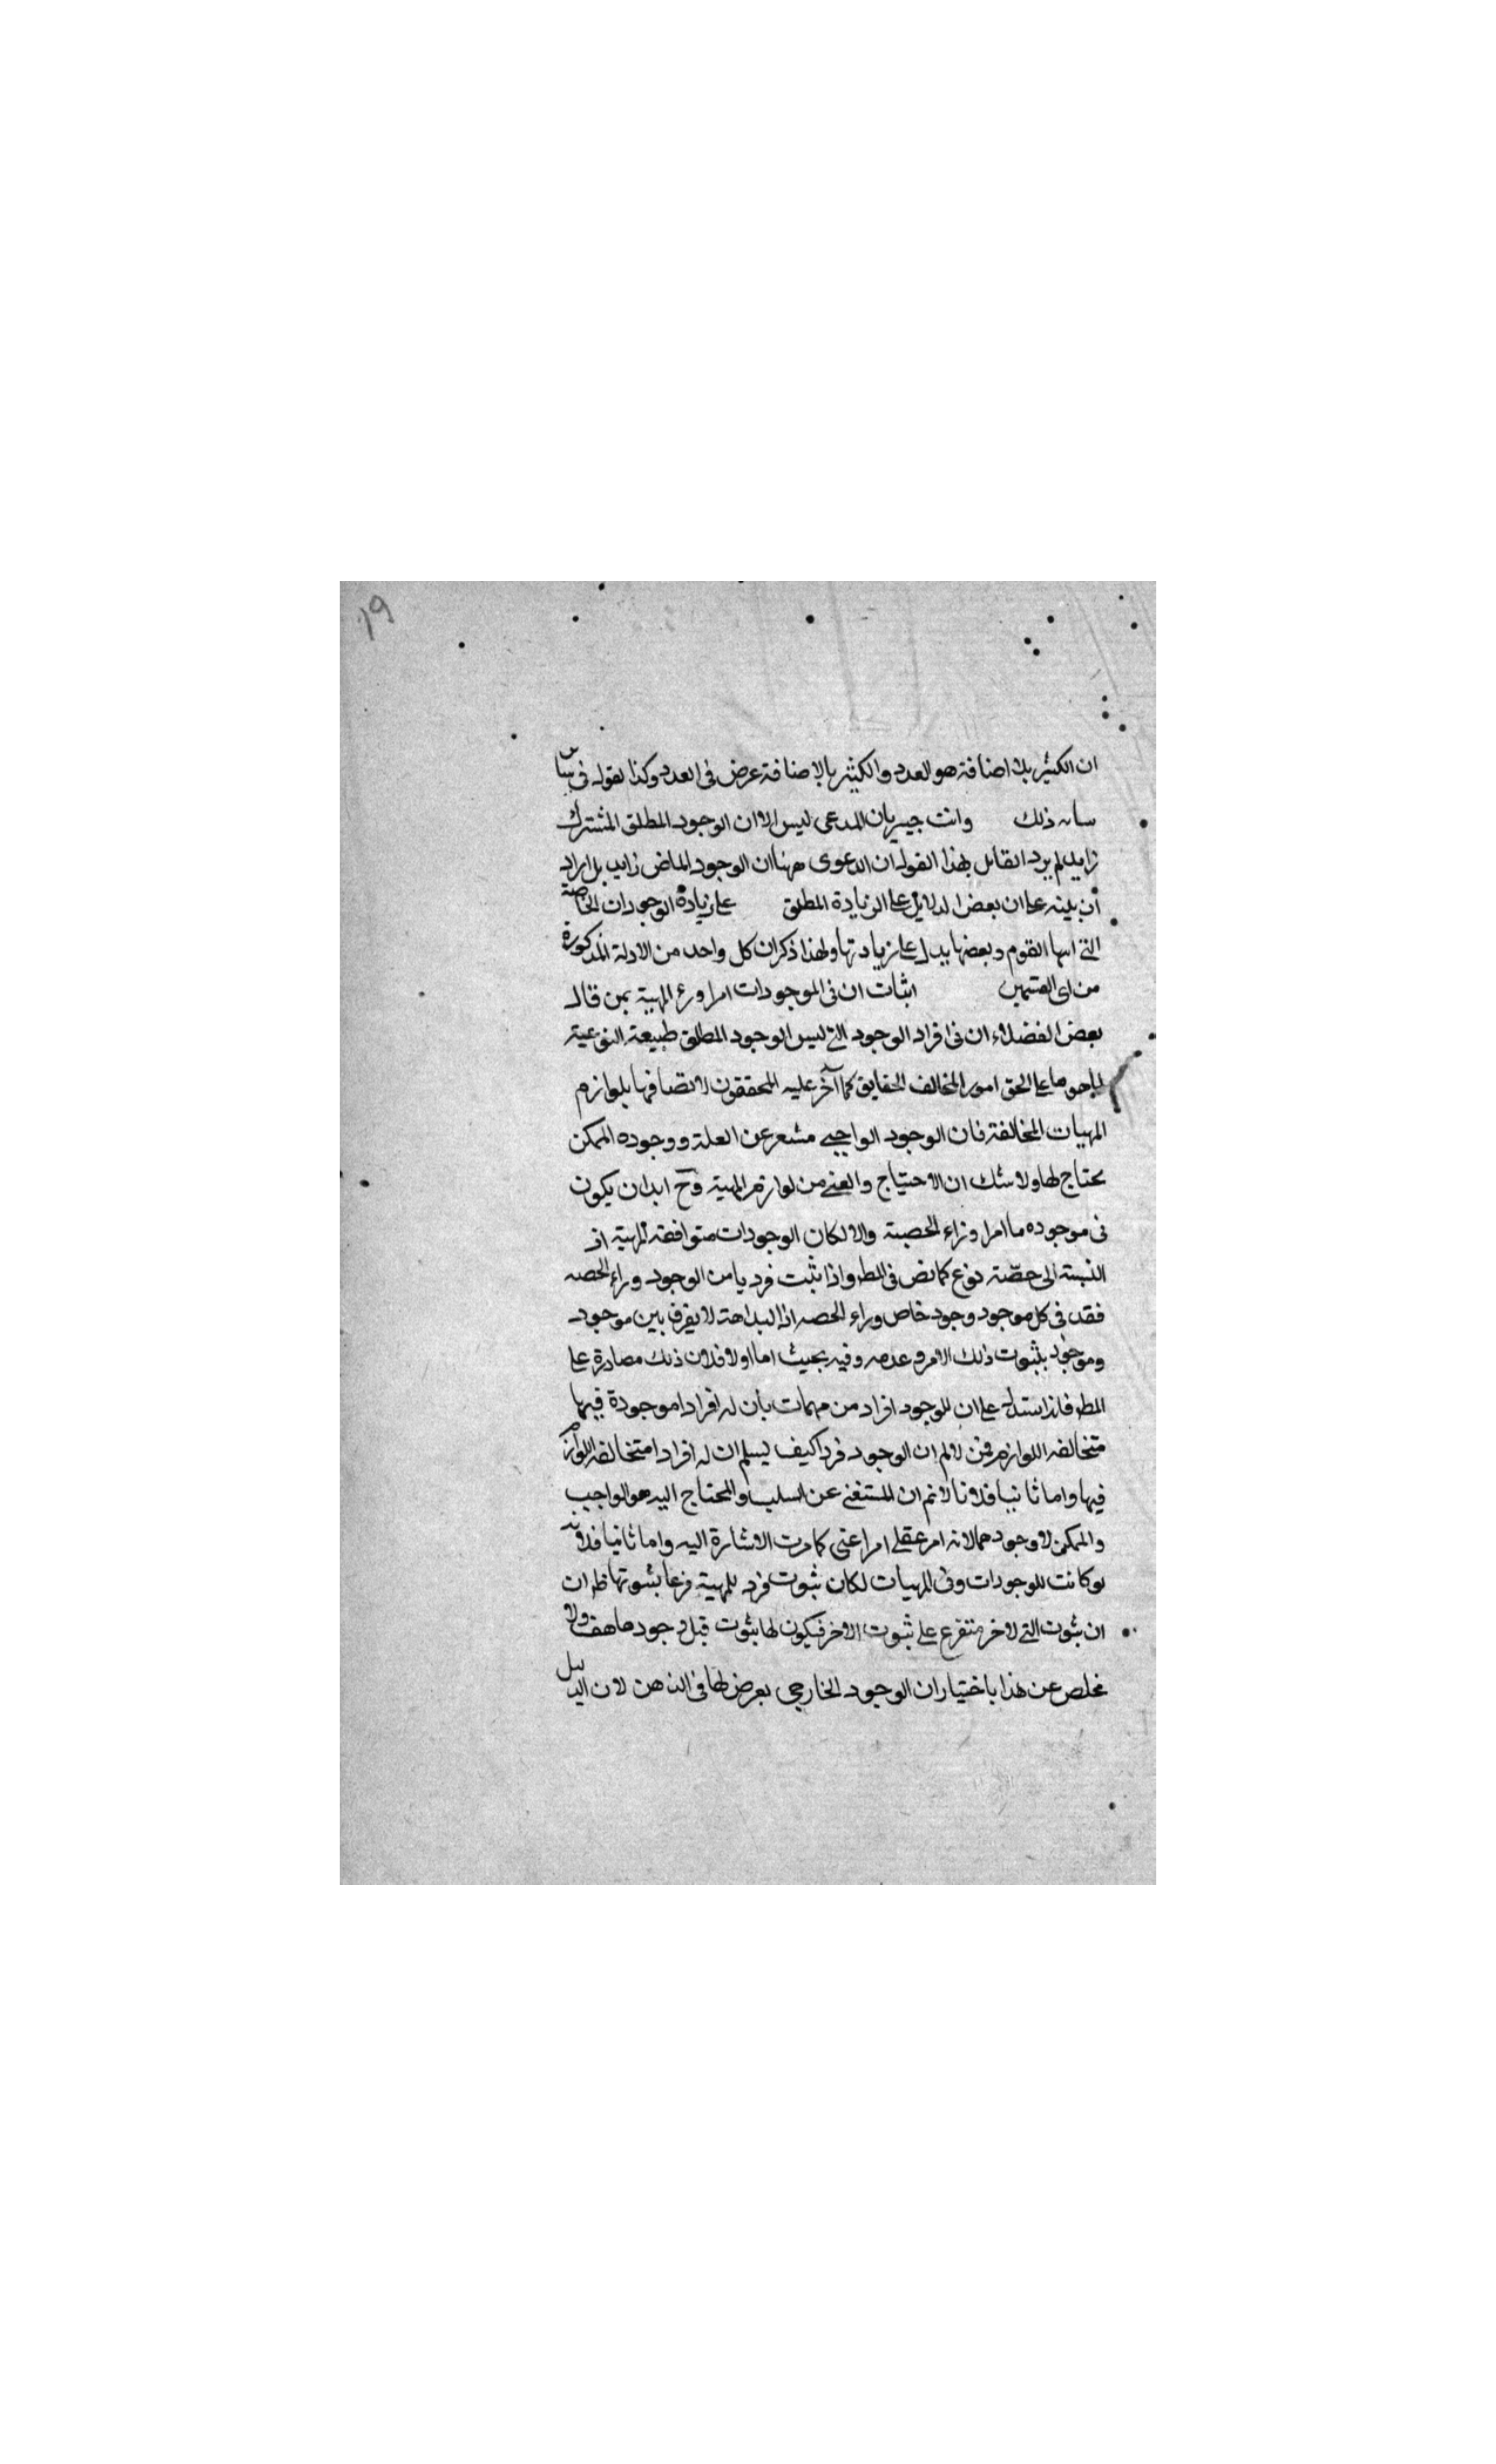 ١٩
ان الكثير بلا اضافة هو العدد والكثير بالاضافة عرض فى العدد وكذا نقوله فى
ذلك وانت خبير بان المدعى ليس الا ان الوجود المطلق المشترك
زايد لم يرد القايل بهذا القول ان الدعوى ههنا ان الوجود الخاص زايد بل اراد
ان بينه على ان بعض الدلايل على الزيادة المطلق على زيادة الوجودات الخاصة
التى القوم وبعضها يدل على زيادتها ولهذا ذكر ان كل واحد من الادلة المذكورة
من اى القسمين اثبات ان فى الموجودات امرا وراء المهية بمن قال
بعض الفضلاء ان فى افراد الوجود التى ليس الوجود المطلق طبيعة النوعية
لها هو ما على الحق امور المخالف الحقايق كما عليه المحققون لاتصافها بلوازم
المهيات المخالفة فان الوجود الواجبى عن العلة ووجوده الممكن
يحتاج لها ولا شك ان الاحتياج والغنى من لوازم المهية وح ان يكون
فى موجوده ما امرا وراء الحصة والا لكان الوجودات متوافقة المهية اذ
النسبة الى حصّته نوع كما نص فى المط واذا ثبت فرد من الوجود وراء الحصه
فقد فى كل موجود وجود خاص وراء الحصه اذ البداهة لا يفرق بين موجود
وموجود بثبوت ذلك الامر وعدمه وفيه بحيث اما اولا فلان ذلك مصادرة على
المط فاذا استدل على ان للوجود افراد من بان له افرادا موجودة فيها
متخالفه اللوازم فمن لا لم ان الوجود فردا كيف يسلم ان له افرادا متخالفه اللوازم
فيها واما ثانيا فلانا لا نم ان المستغنى عن السلب والمحتاج اليه هو الواجب
والممكن لا وجودهما لانه امر عقلى كما مرت الاشارة اليه واما ثانيا فلانه
لو كانت للوجودات وفى المهيات لكان ثبوت فرد للمهية فرعا بثبوتها ظ ان
ان ثبوت التى لاخر متفرع على ثبوت الاخر فيكون لها ثبوت قبل وجودها هف ولا
مخلص عن هذا باختيار ان الوجود الخارجى يعرض لها فى الذهن لان الدليل